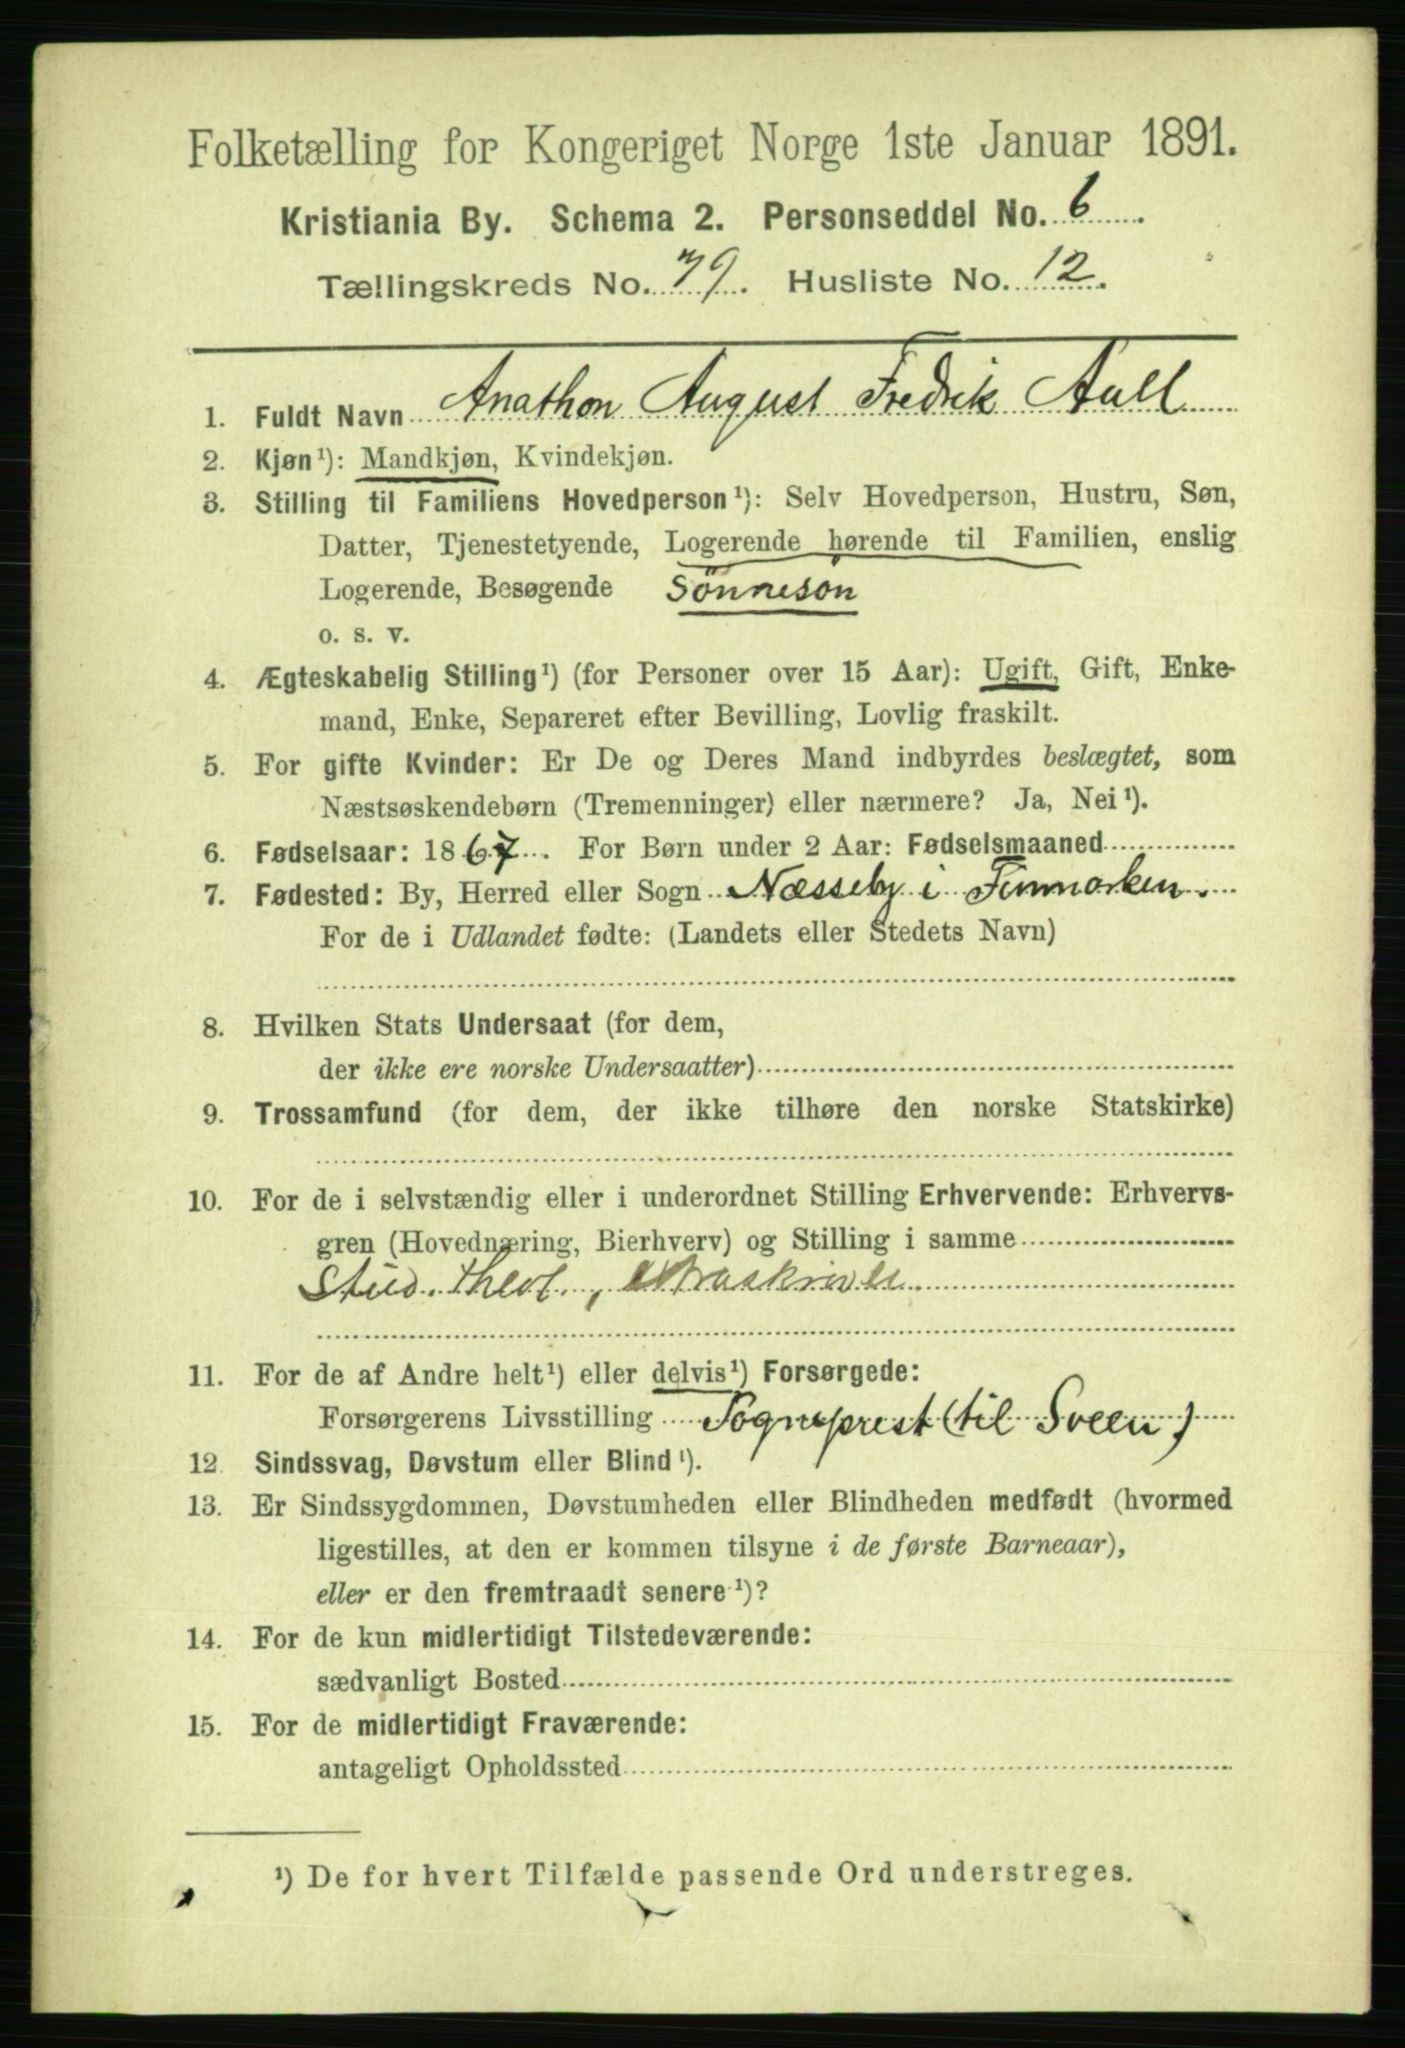 Folketælling for Kongeriget Norge 1ste Januar 1891.
Kristiania By. Schema 2. Personseddel No. 6
Tællingskreds No. 79. Husliste No. 12.
1. Fuldt Navn Anathon August Fredrik Aall
2. Kjøn¹): Mandkjøn, Kvindekjøn.
3. Stilling til Familiens Hovedperson¹): Selv Hovedperson, Hustru, Søn,
Datter, Tjenestetyende, Logerende hørende til Familien, enslig
Logerende, Besøgende Sönnesön
o. s. v.
4. Ægteskabelig Stilling¹) (for Personer over 15 Aar): Ugift, Gift, Enke-
mand, Enke, Separeret efter Bevilling, Lovlig fraskilt.
5. For gifte Kvinder: Er De og Deres Mand indbyrdes beslægtet, som
Næstsøskendebørn (Tremenninger) eller nærmere? Ja, Nei¹).
6. Fødselsaar: 1867. For Børn under 2 Aar: Fødselsmaaned
7. Fødested: By, Herred eller Sogn Næsseby i Finmarken.
For de i Udlandet fødte: (Landets eller Stedets Navn)
8. Hvilken Stats Undersaat (for dem,
der ikke ere norske Undersaatter)
9. Trossamfund (for dem, der ikke tilhøre den norske Statskirke)
10. For de i selvstændig eller i underordnet Stilling Erhvervende: Erhvervs-
gren (Hovednæring, Bierhverv) og Stilling i samme
Stud. theol., extraskriver
11. For de af Andre helt¹) eller delvis¹) Forsørgede:
Forsørgerens Livsstilling Sogneprest (til Sveen)
12. Sindssvag, Døvstum eller Blind¹).
13. Er Sindssygdommen, Døvstumheden eller Blindheden medfødt (hvormed
ligestilles, at den er kommen tilsyne i de første Barneaar),
eller er den fremtraadt senere¹)?
14. For de kun midlertidigt Tilstedeværende:
sædvanligt Bosted
15. For de midlertidigt Fraværende:
antageligt Opholdssted
¹) De for hvert Tilfælde passende Ord understreges.